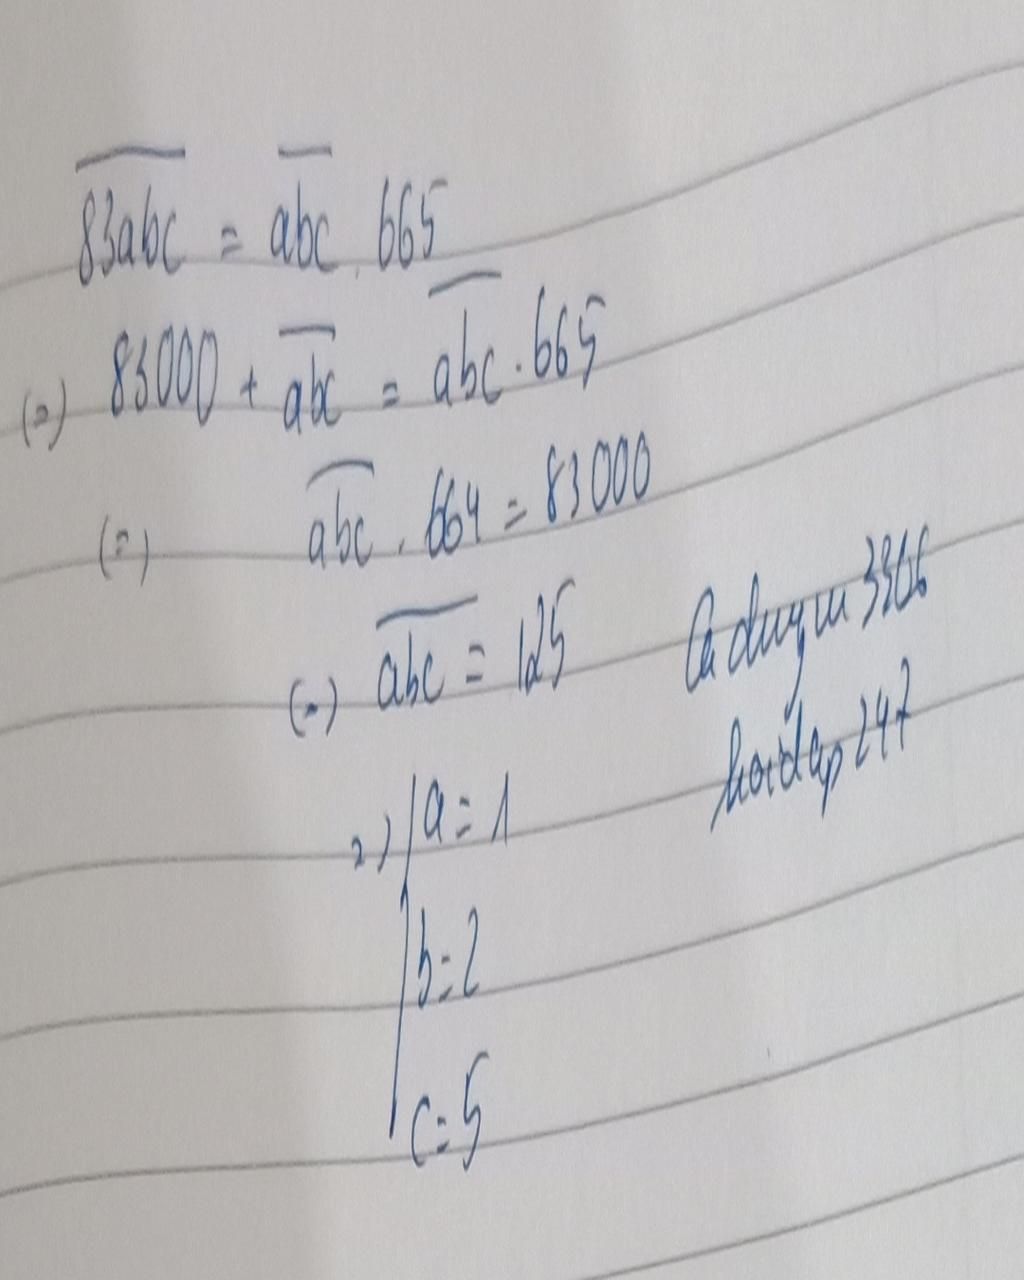 83abc = abc . 665
(=) 83000 + abc = abc . 665
(=) abc . 664 = 83000
(=) abc = 125
=) a = 1
b = 2
c = 5
hoidap247